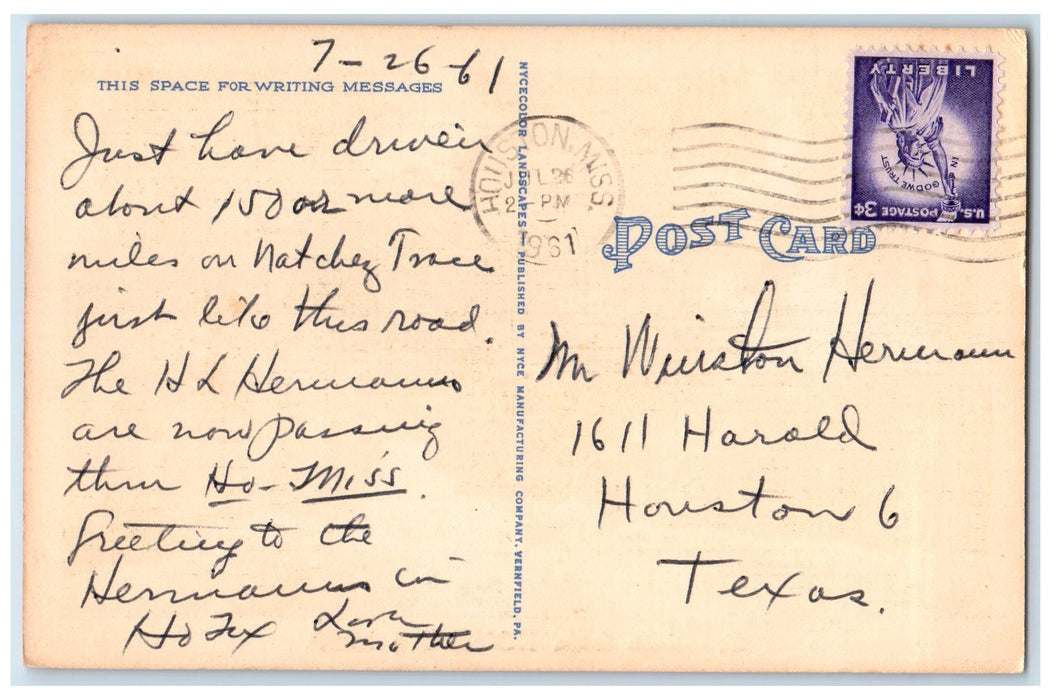 7-26-61
THIS SPACE FOR WRITING MESSAGES
Just have driven
about 150 or more
miles on Natchez Trace
just like this road.
The H L Hermanns
are now passing
thru Ho-Miss.
Greeting to the
Hermanns in
Ho Tex Love
Mother
NYCECOLOR LANDSCAPES PUBLISHED BY NYCE MANUFACTURING COMPANY, VERNFIELD, PA.
HOUSTON, MISS.
JUL 26
2-PM
1961
LIBERTY
IN GOD WE TRUST
U.S. POSTAGE 3¢
POST CARD
Mr Winston Hermann
1611 Harold
Houston 6
Texas.